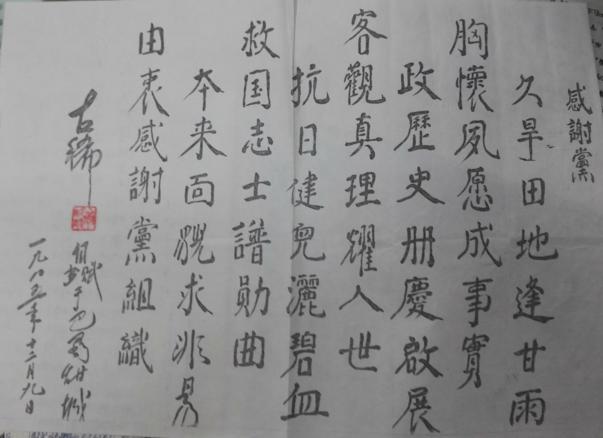 感謝黨
久旱田地逢甘雨
胸懷夙愿成事實
政歷史册慶啟展
客觀真理耀人世
抗日健兒灑碧血
救国志士譜勛曲
本来面貌求非易
由衷感謝黨組織
古稀
自賦于巴蜀柑城
一九八五年十二月九日